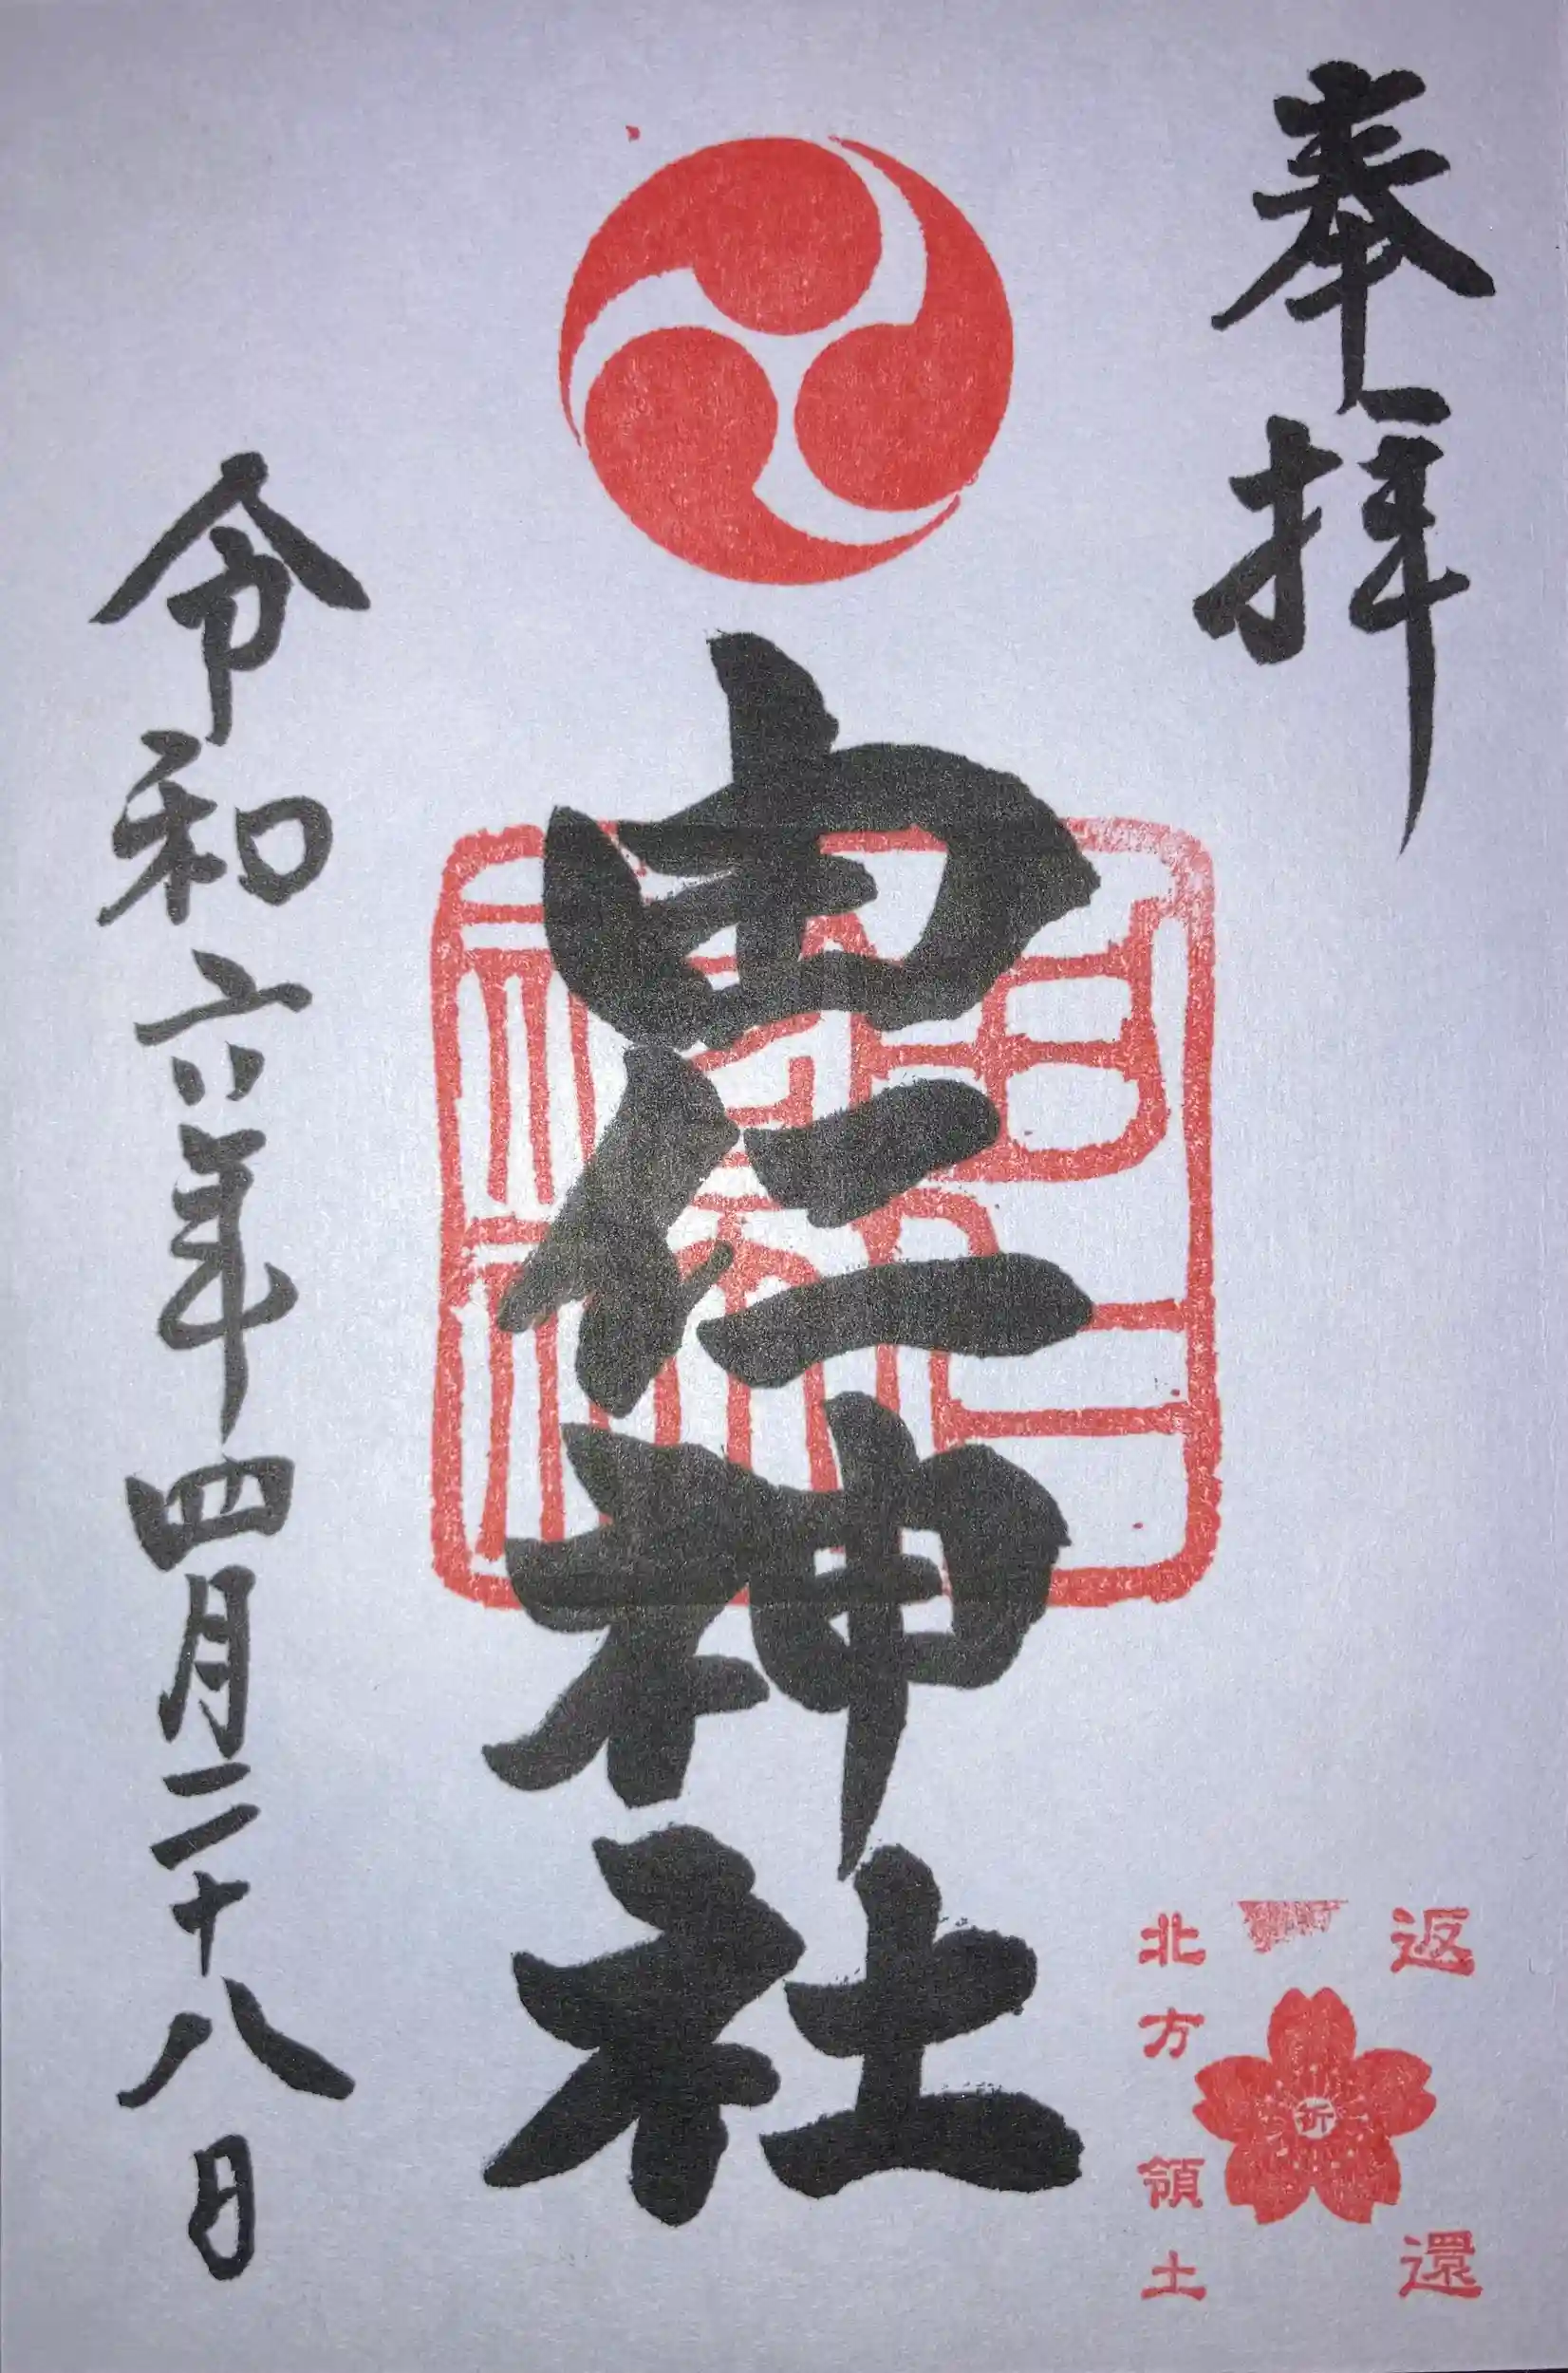 奉拝
由仁神社
令和六年四月二十八日
返還
祈
北方領土